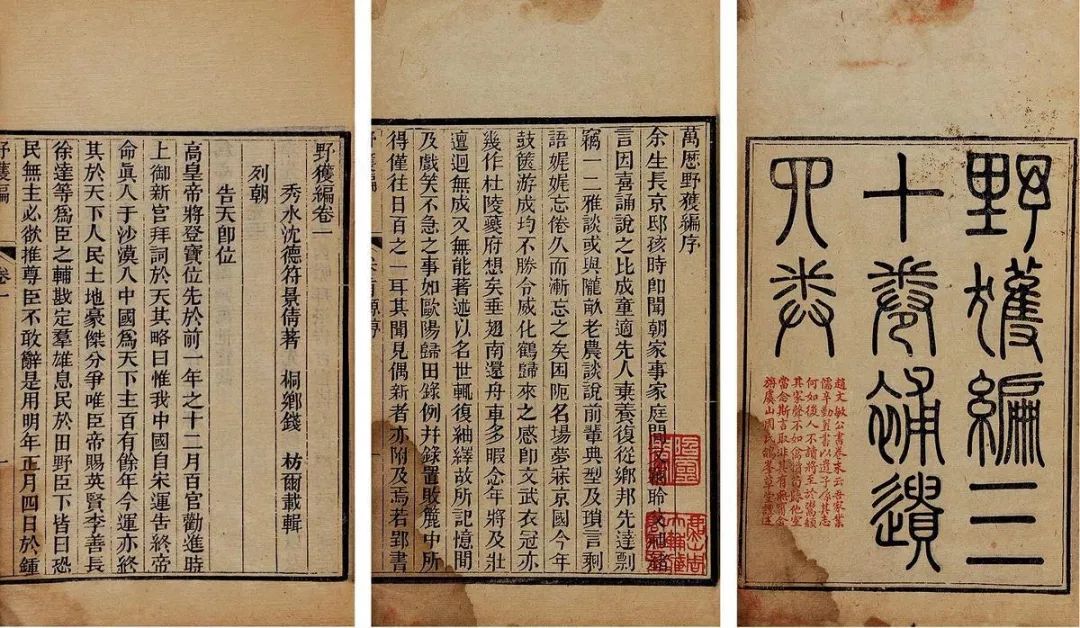 野獲編三
十卷補遺
四卷
趙文敏公書卷末云吾家業
儒辛勤置書以遺子孫其志
何如後人不讀將至於鬻頹
其家聲不如禽犢苟歸他室
當念斯言取非其有無寧舍
旃虞山周氏鴿峯草堂
萬歷野獲編序
余生長京邸孩時即聞朝家事家庭間又竊聆父祖緒
言因喜誦說之比成童適先人棄養復從鄉邦先達剽
竊一二雅談或與隴畝老農談說前輩典型及瑣言剩
語娓娓忘倦久而漸忘之矣困阨名場夢寐京國今年
鼓篋游成均不勝令威化鶴歸來之感即文武衣冠亦
幾作杜陵夔府想矣垂翅南還舟車多暇念年將及壯
邅迴無成又無能著述以名世輒復紬繹故所記憶間
及戲笑不急之事如歐陽歸田錄例幷錄置敗簏中所
得僅往日百之一耳其聞見偶新者亦附及焉若郢書
野獲編卷一
秀水沈德符景倩著 桐鄉錢 枋爾載輯
列朝
告天即位
高皇帝將登寶位先於前一年之十二月百官勸進時
上御新宮拜詞於天其略曰惟我中國自宋運告終帝
命眞人于沙漠入中國爲天下主百有餘年今運亦終
其於天下人民土地豪傑分爭唯臣帝賜英賢李善長
徐達等爲臣之輔戡定羣雄息民於田野臣下皆曰恐
民無主必欲推尊臣不敢辭是用明年正月四日於鍾
野獲編
卷一